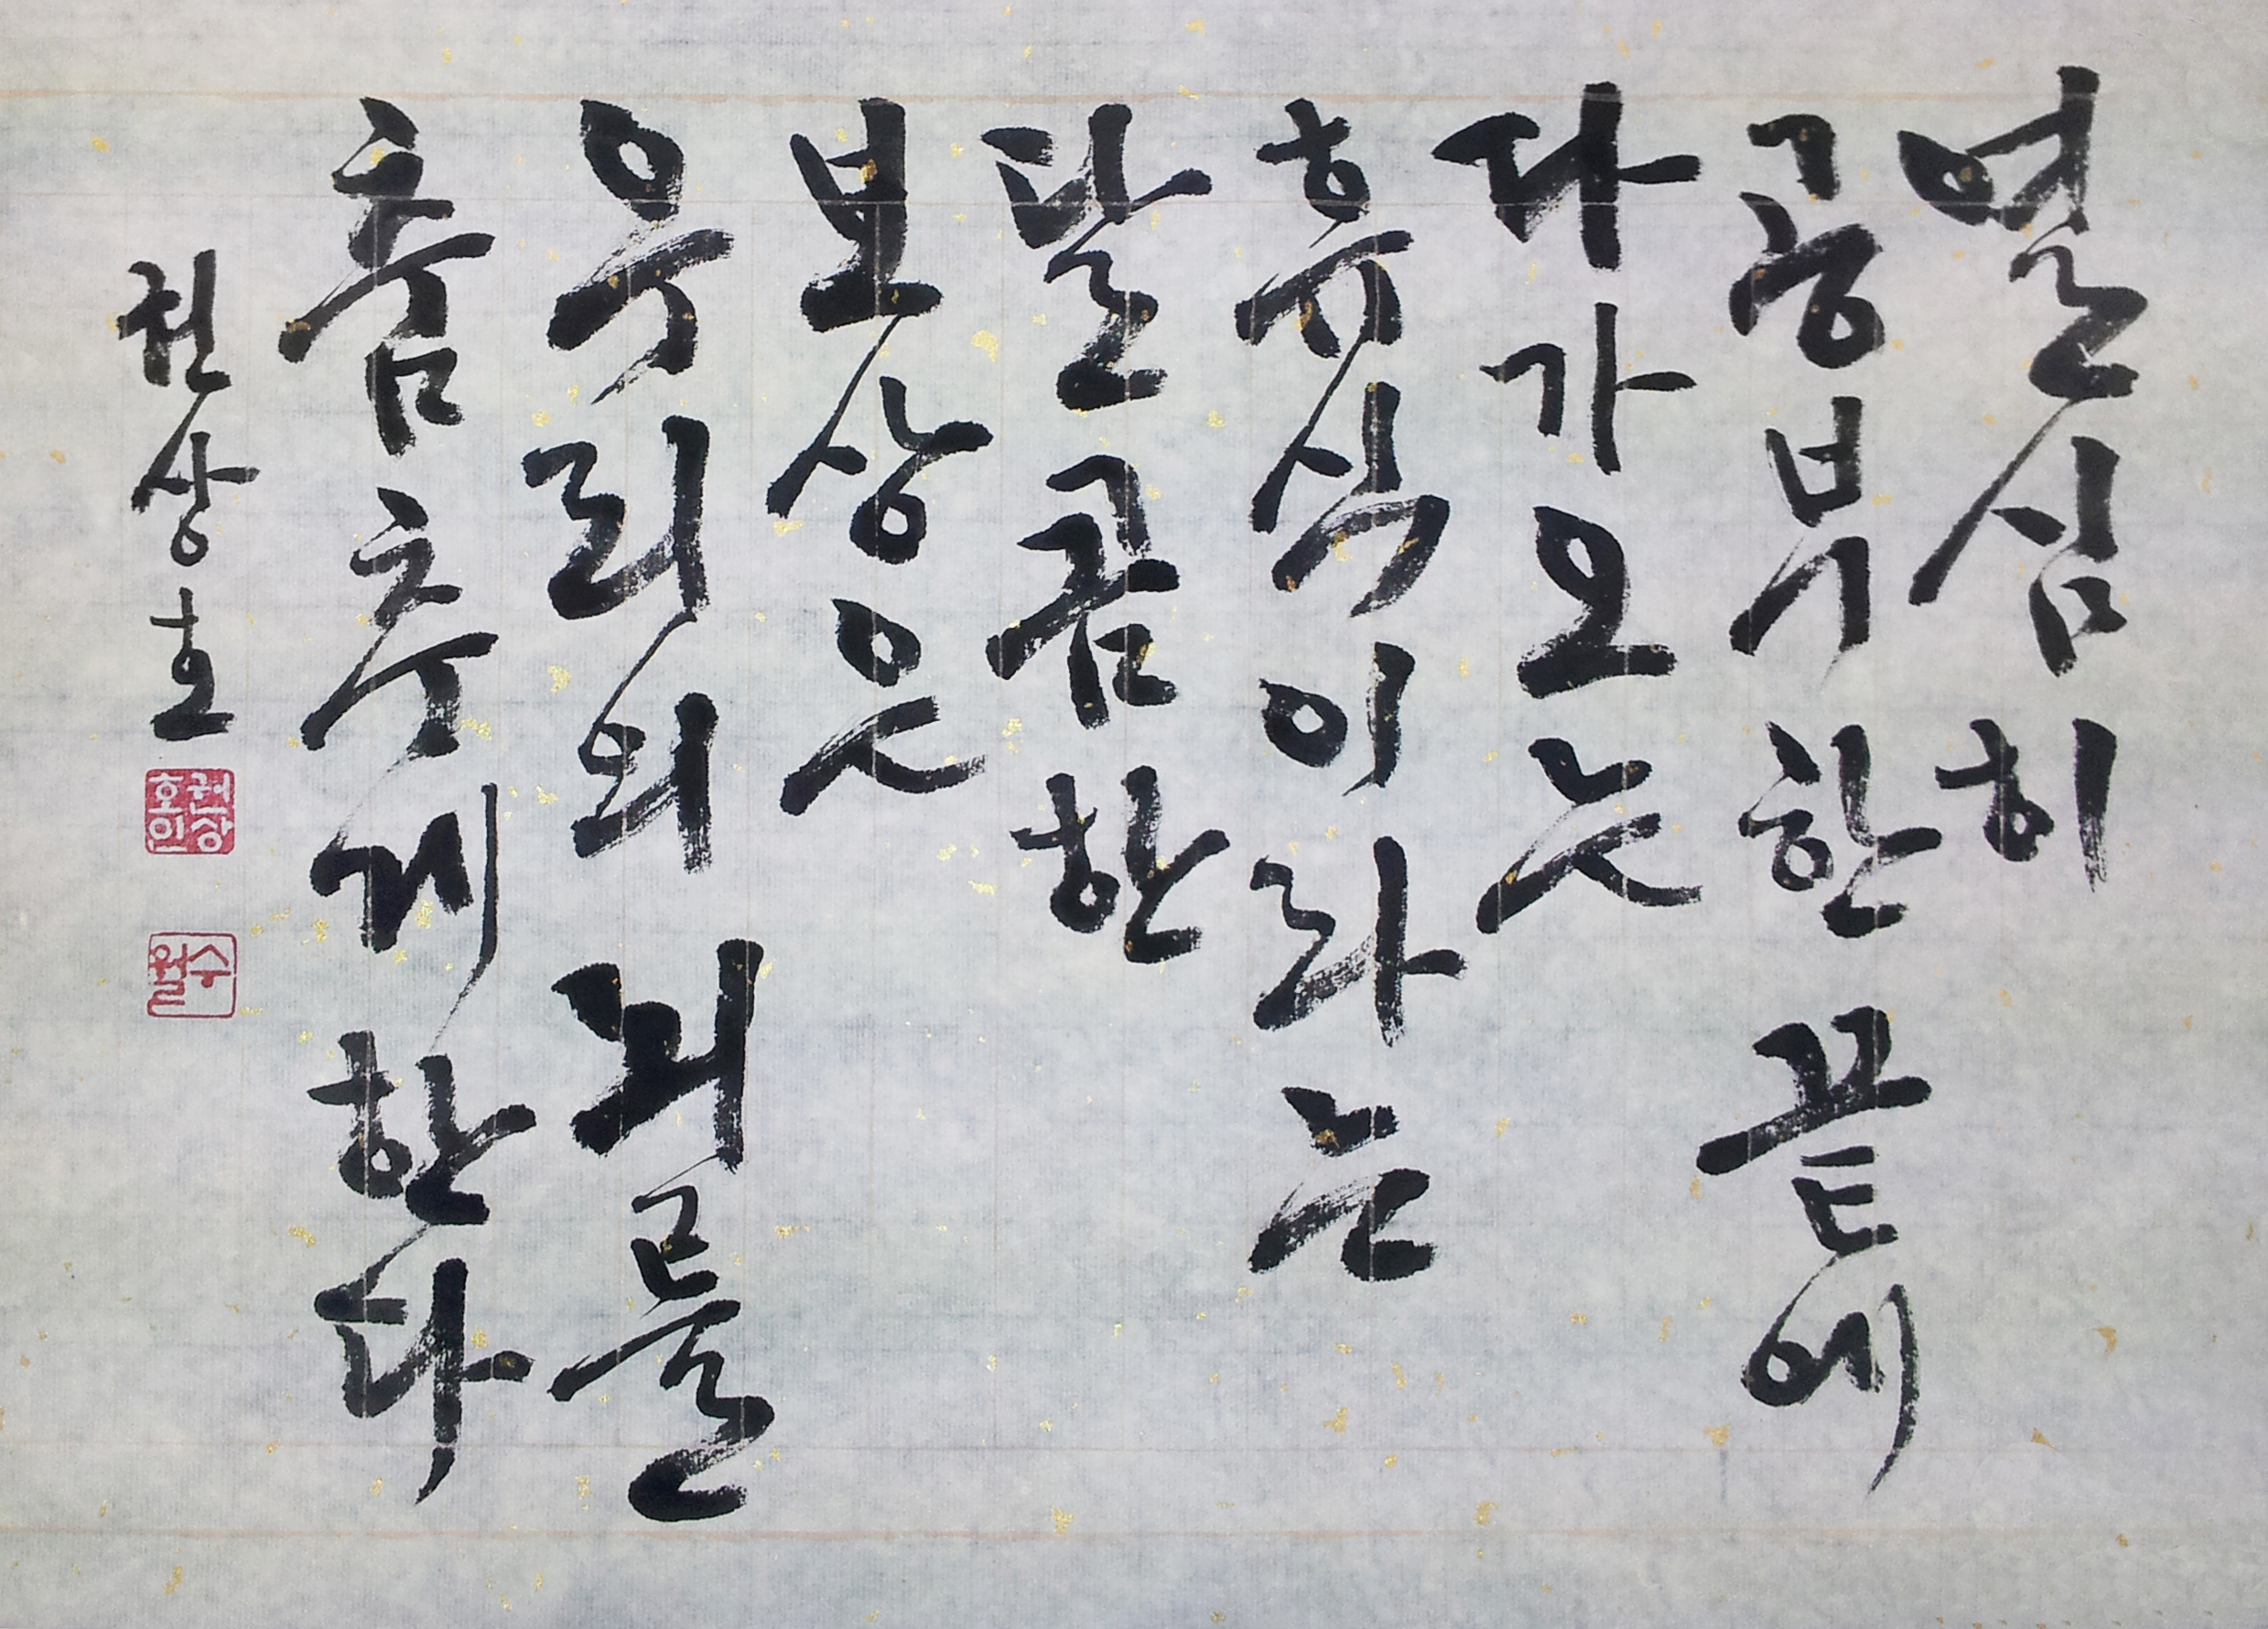 열심히
공부한 끝에
다가오는
휴식이라는
달콤한
보상은
우리의 뇌를
춤추게 한다
권상호
권상호인
수월